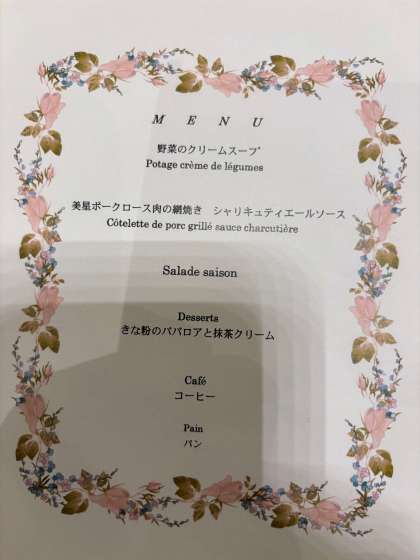 MENU
野菜のクリームスープ
Potage crème de légumes
美星ポークロース肉の網焼き　シャリキュティエールソース
Côtelette de porc grillé sauce charcutière
Salade saison
Desserts
きな粉のババロアと抹茶クリーム
Café
コーヒー
Pain
パン